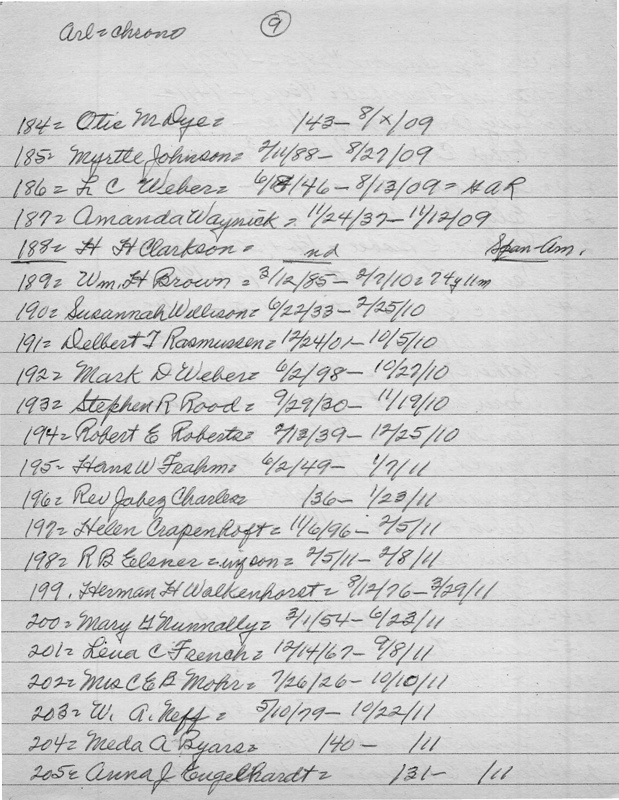 Arl = chrono 9
184 = Otis M Dye = /43 – 8/x/09
185 = Myrtle Johnson = 2/11/88 – 8/27/09
186 = L C Weber = /46 – 8/13/09 = GAR
187 = Amanda Waynick = 11/24/37 – 11/12/09
188 = H H Clarkson = nd Span-Am.
189 = Wm. H Brown = 3/12/85 – 2/7/10 = 74y 11m
190 = Susannah Willison = 6/22/33 – 2/25/10
191 = Delbert T Rasmussen = 12/24/01 – 10/5/10
192 = Mark D Weber = 6/2/98 – 10/27/10
193 = Stephen R Rood = 9/29/30 – 11/19/10
194 = Robert E Roberts = 2/13/39 – 12/25/10
195 = Hans W Frahm = 6/2/49 – 1/7/11
196 = Rev Jabez Charles = /36 – 1/23/11
197 = Helen Crapenhoft = 11/6/96 – 2/5/11
198 = R B Elsner = inf son = 2/5/11 – 2/8/11
199. Herman H Walkenhorst = 8/12/76 – 3/29/11
200 = Mary G Nunnally = 3/1/54 – 6/23/11
201 = Lena C French = 12/14/67 – 9/8/11
202 = Mrs C E B Mohr = 7/26/26 – 10/10/11
203 = W. A. Neff = 5/10/79 – 10/22/11
204 = Meda A Byars = /40 – /11
205 = Anna J Engelhardt = /31 – /11